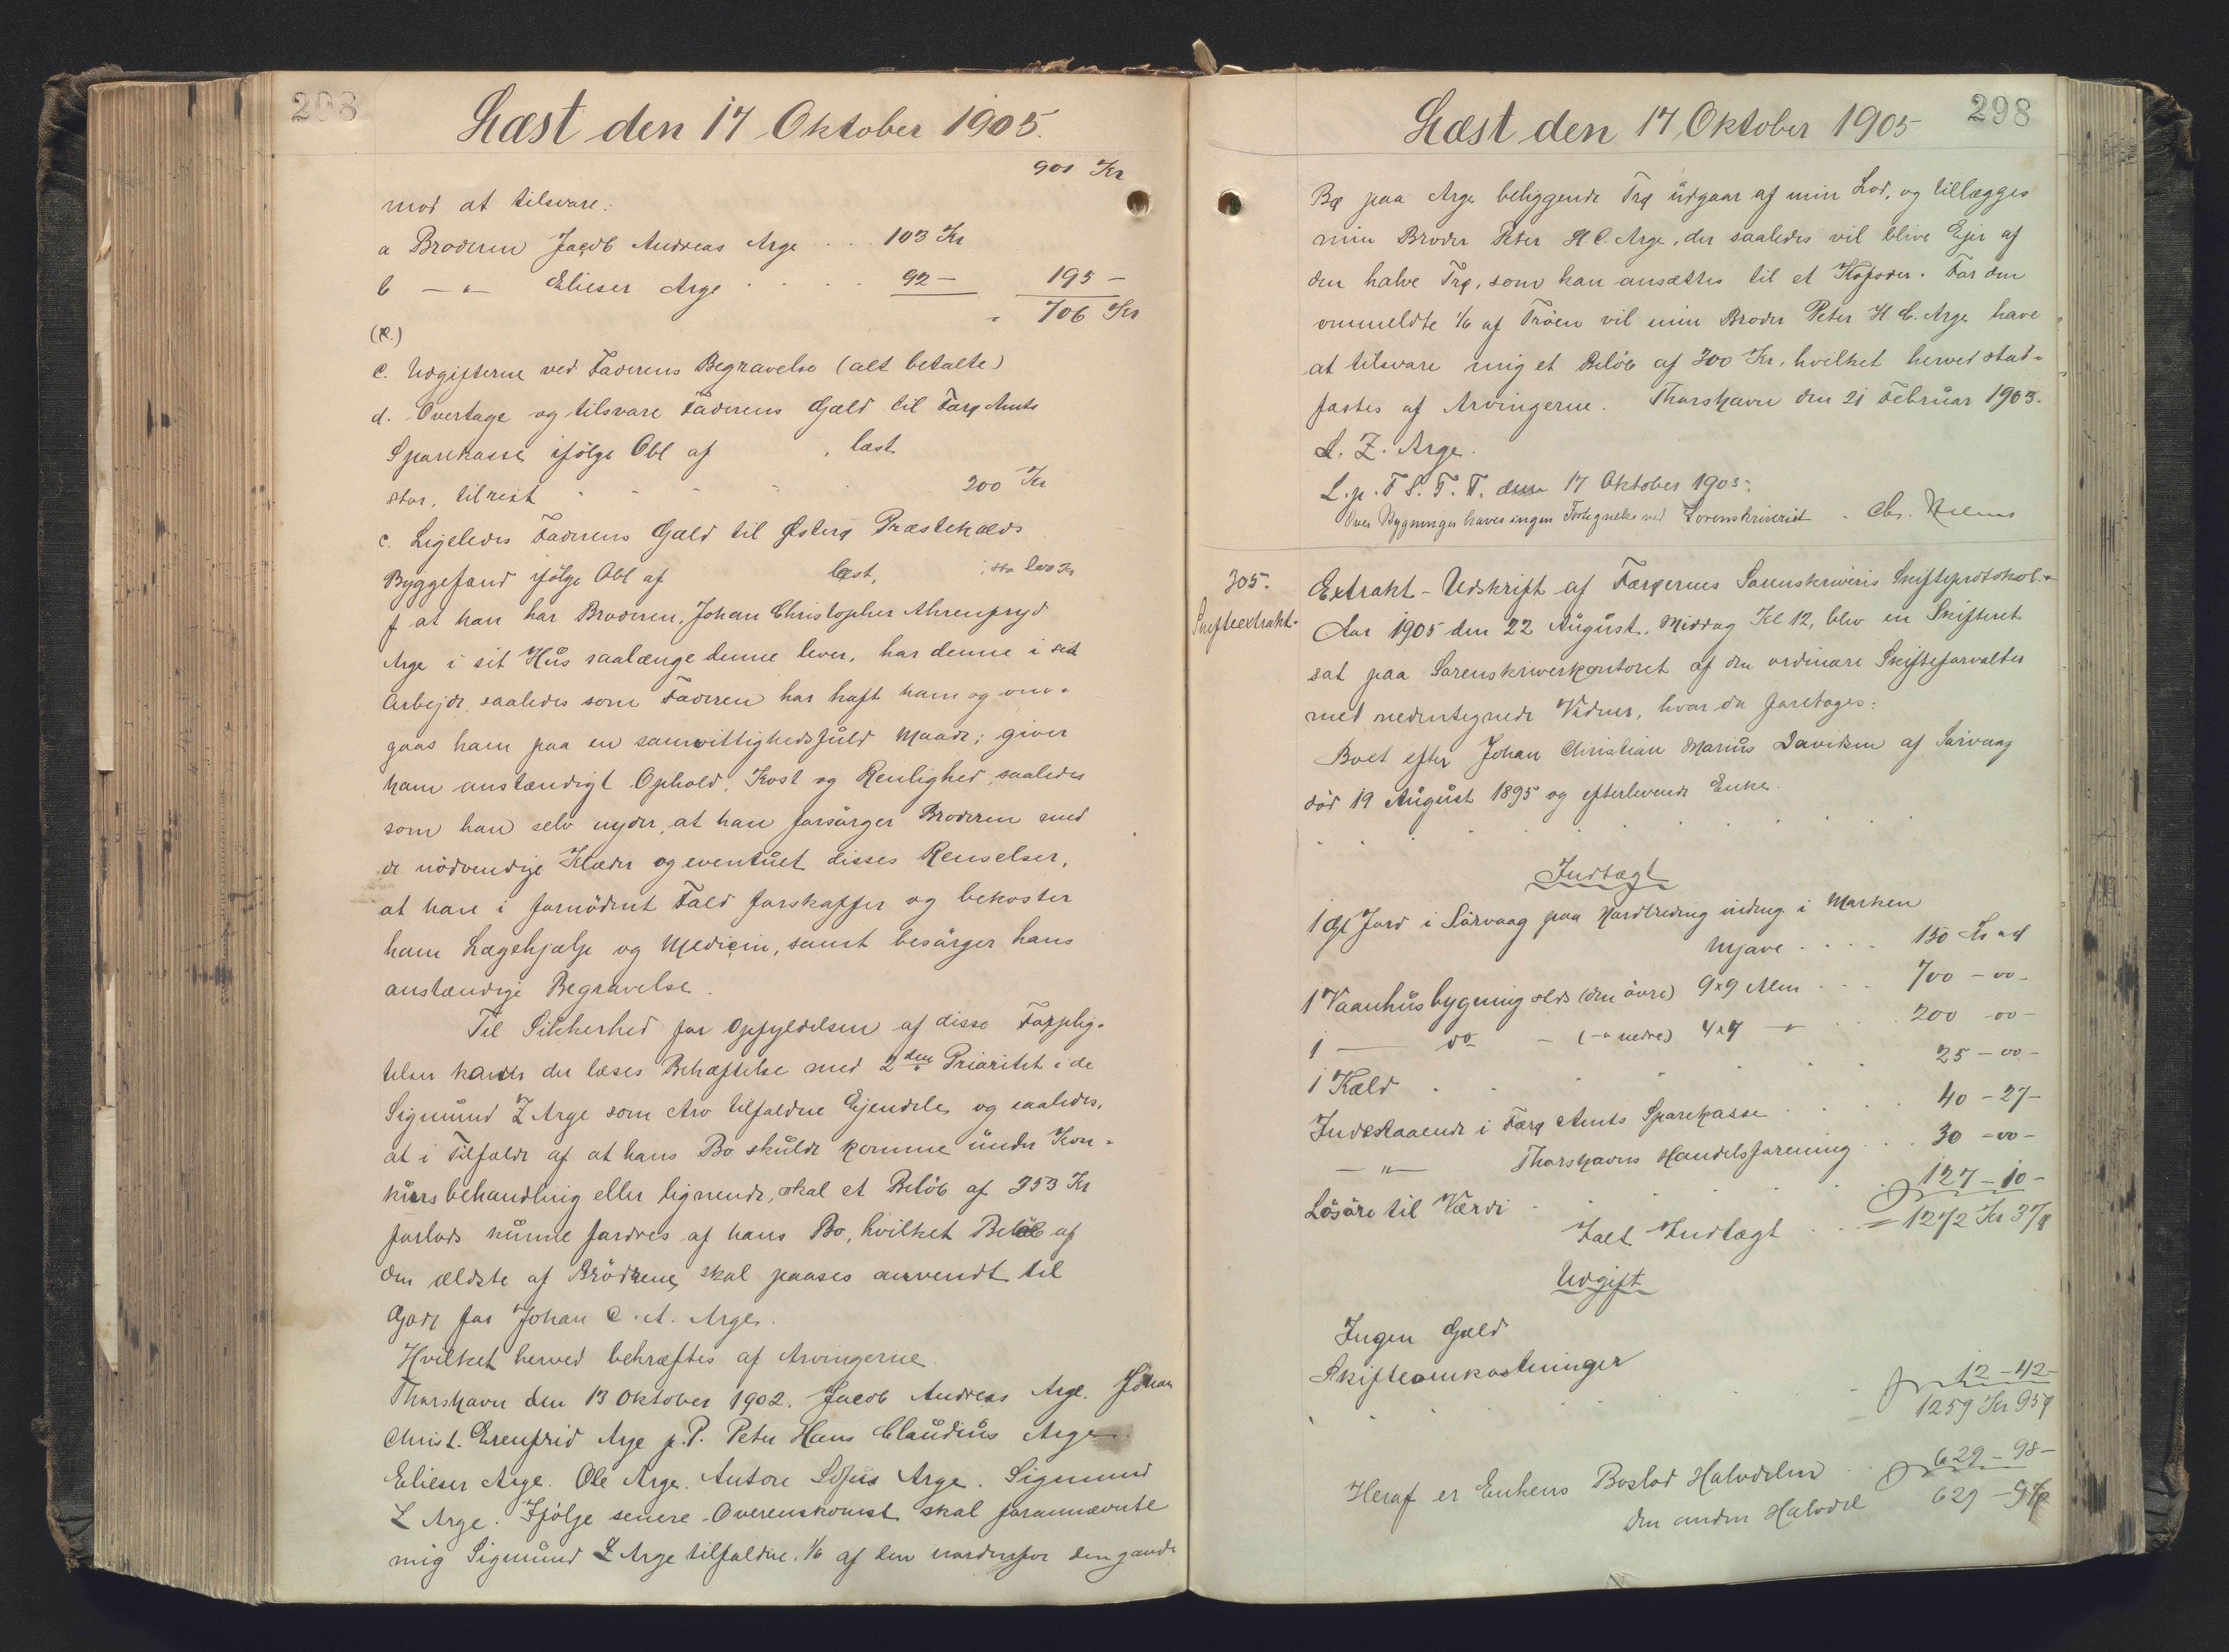 298
Læst den 17 Oktober 1905.
901 Kr
mod at tilsvare:
a Broderen Jacob Andreas Arge . . . 103 Kr
b — " — Elieser Arge . . . . 92 — 195 —
706 Kr
(R.)
c. Udgifterne ved Faderens Begravelse (alt betalte)
d. Overtage og tilsvare Faderens Gæld til Færø Amts
Sparekasse ifølge Obl af , læst
stor, tilrest 200 Kr
e. Ligeledes Faderens Gæld til Østerø Præstekalds
Byggefond ifølge Obl af læst, sto 200 Kr
f at han har Broderen, Johan Christopher Ahrenfryd
Arge i sit Hus saalænge denne lever, har denne i sit
Arbejde, saaledes som Faderen har haft ham og om-
gaas ham paa en samvittighedsfuld Maade; giver
ham anstændigt Ophold, Kost og Renlighed, saaledes
som han selv nyder, at han forsørger Broderen med
de nödvendige Klæder og eventuel disses Renselser,
at han i fornödent Fald forskaffer og bekoster
ham Lægehjælp og Medicin, samt besörger hans
anstændige Begravelse.
Til Sikkerhed for Opfyldelsen af disse Forplig-
telser kan der læses Behæftelse med 2den Prioritet i de
Sigmund Z Arge som Arv tilfaldne Ejendele, og saaledes,
at i Tilfælde af at hans Bo skulde komme under Kon-
kursbehandling eller lignende, skal et Beløb af 353 Kr
forlods kunne fordres af hans Bo, hvilket Beløb af
den ældste af Brødrene, skal paases anvendt til
Gode for Johan C. A. Arge.
Hvilket herved bekræftes af Arvingerne.
Thorshavn den 13 Oktober 1902. Jacob Andreas Arge. Johan
Christ. Erenfrid Arge p. P. Peter Hans Claudius Arge.
Elieser Arge. Ole Arge. Antore Sofus Arge. Sigmund
Z Arge. Ifølge senere Overenskomst skal forannævnte
mig Sigmund Z Arge tilfaldne 1/6 af den nordenfor den gamle
298
Læst den 17 Oktober 1905
Bø paa Arge beliggende Trø udgaar af min Lod, og tillægges
min Broder Peter H. C. Arge, der saaledes vil blive Ejer af
den halve Trø, som kan ansættes til et Kofoder. For den
ommeldte 1/6 af Tröen vil min Broder Peter H C. Arge have
at tilsvare mig et Beløb af 300 Kr, hvilket herved stad-
fæstes af Arvingerne. Thorshavn den 21 Februar 1903.
S. Z. Arge.
L. p. F S. T. T. den 17 Oktober 1905.
Over Bygninger haves ingen Fortegnelse ved Sorenskriveriet.
305.
Skifteextrakt.
Extrakt-Udskrift af Færøernes Sorenskriveris Skifteprotokol.
Aar 1905 den 22 August, Middag Kl 12, blev en Skifteret
sat paa Sorenskriverkontoret af den ordinære Skifteforvalter
med nedentegnede Vidner, hvor da foretoges:
Boet efter Johan Christian Marius Davidsen af Sørvaag
död 19 August 1895 og efterlevende Enke.
Indtægt
1 Gl Jord i Sörvaag paa Nordtreding indmg. i Marken
Mjave . . . . 150 Kr
1 Vaanhusbygning (den övre) 9x9 Alen . . . 700 - 00 -
1 — do — (-" nedre) 4x7 — " . . . 200 - 00 -
1 Kæld . . . . 25 - 00 -
Indestaaende i Færø Amts Sparekasse . . . 40 - 27 -
— " — Thorshavns Handelsforening . . . 30 - 00 -
Lösöre til Værdi . . . . 127 - 10 -
Ialt Indtægt . . = 1272 Kr 37
Udgift
Ingen Gæld
Skifteomkostninger 12 - 42 -
1259 Kr 95
Heraf er Enkens Boslod Halvdelen . . 629 - 98 -
den anden Halvdel 629 - 97